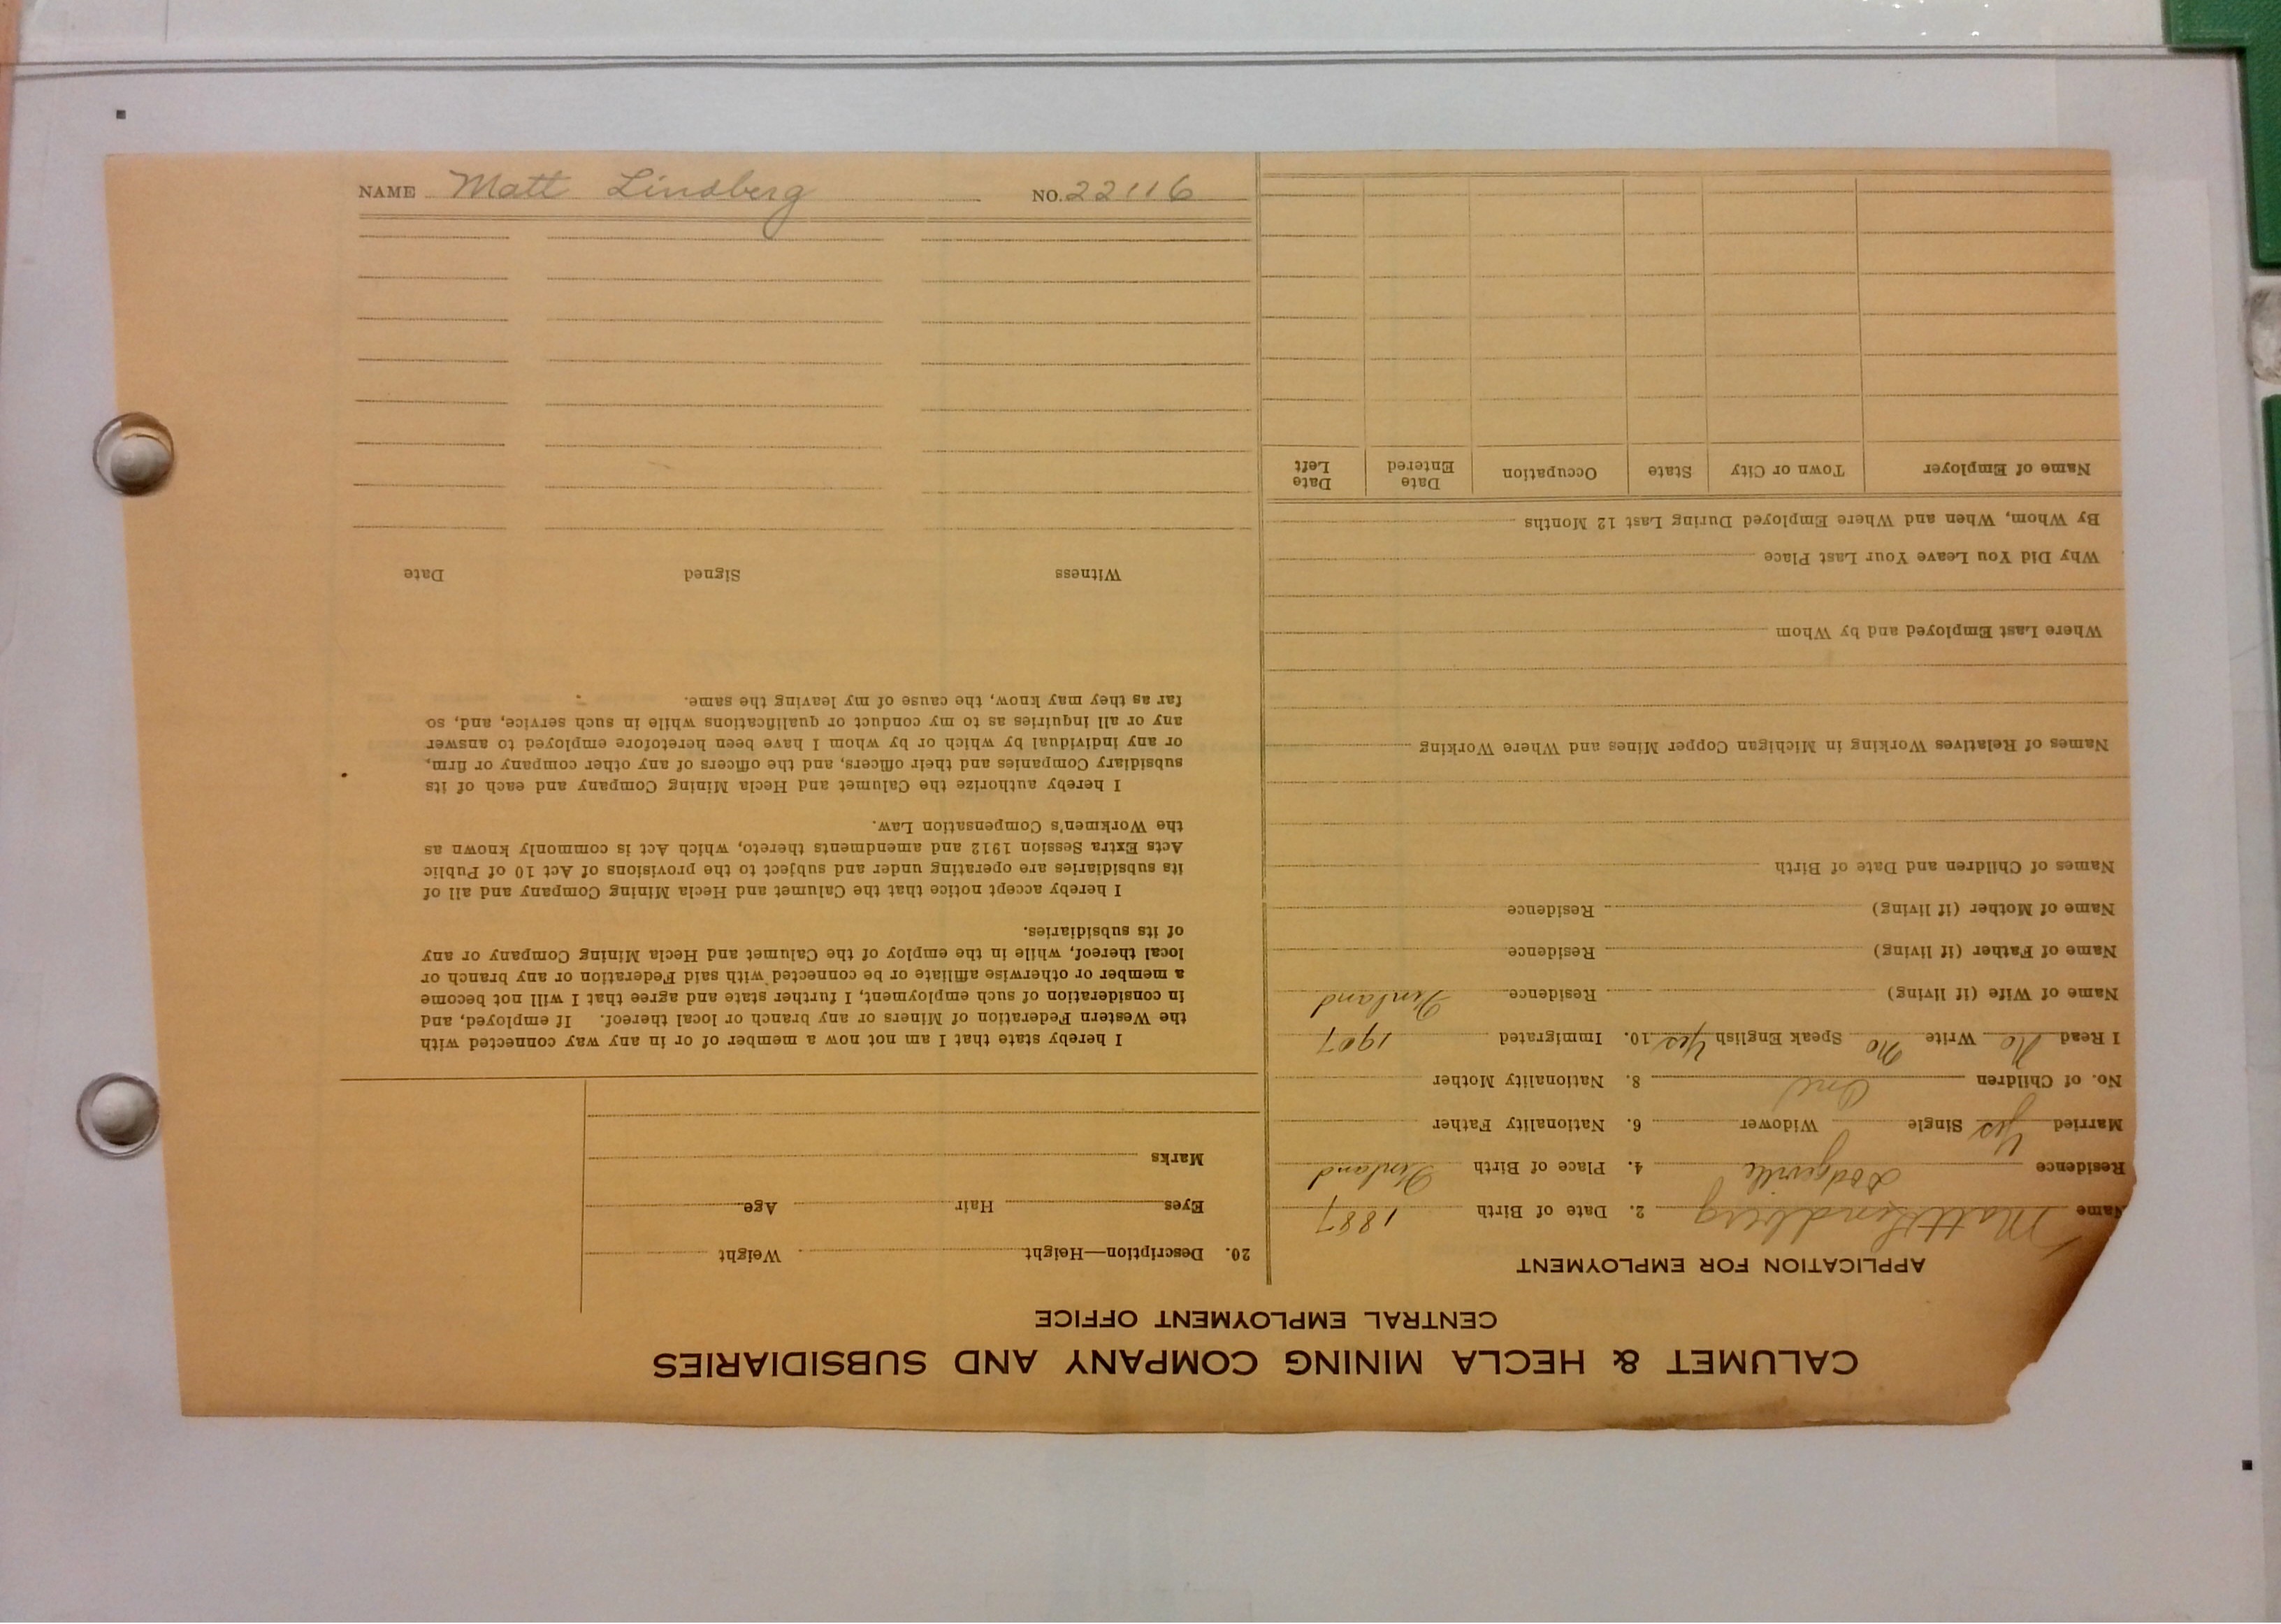 NAME Matt Lindberg NO. 22116
CALUMET & HECLA MINING COMPANY AND SUBSIDIARIES
CENTRAL EMPLOYMENT OFFICE
APPLICATION FOR EMPLOYMENT
Name Matt Lindberg 2. Date of Birth 1887
Residence Dodgeville 4. Place of Birth Finland
Married Yes Single Widower 6. Nationality Father
No. of Children One 8. Nationality Mother
I Read No Write No Speak English Yes 10. Immigrated 1907
Name of Wife (if living) Residence Finland
Name of Father (if living) Residence
Name of Mother (if living) Residence
Names of Children and Date of Birth
Names of Relatives Working in Michigan Copper Mines and Where Working
Where Last Employed and by Whom
Why Did You Leave Your Last Place
By Whom, When and Where Employed During Last 12 Months
Name of Employer Town or City State Occupation Date Entered Date Left
20. Description—Height Weight
Eyes Hair Age
Marks
I hereby state that I am not now a member of or in any way connected with
the Western Federation of Miners or any branch or local thereof. If employed, and
in consideration of such employment, I further state and agree that I will not become
a member or otherwise affiliate or be connected with said Federation or any branch or
local thereof, while in the employ of the Calumet and Hecla Mining Company or any
of its subsidiaries.
I hereby accept notice that the Calumet and Hecla Mining Company and all of
its subsidiaries are operating under and subject to the provisions of Act 10 of Public
Acts Extra Session 1912 and amendments thereto, which Act is commonly known as
the Workmen's Compensation Law.
I hereby authorize the Calumet and Hecla Mining Company and each of its
subsidiary Companies and their officers, and the officers of any other company or firm,
or any individual by which or by whom I have been heretofore employed to answer
any or all inquiries as to my conduct or qualifications while in such service, and, so
far as they may know, the cause of my leaving the same.
Witness Signed Date